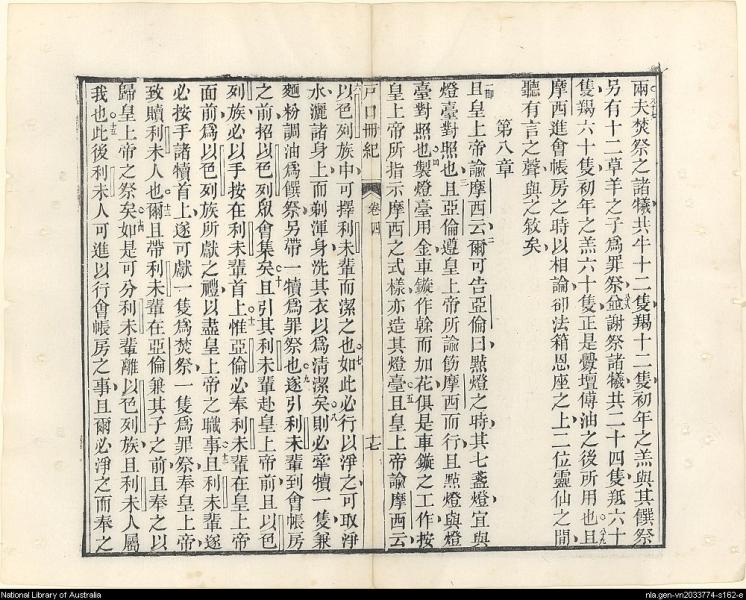 兩夫焚祭之諸犧共牛十二隻羯十二隻初年之羔與其饌祭
另有十二草羊之子爲罪祭
謝祭諸犧共二十四隻羝六十
隻羯六十隻初年之羔六十隻正是
壇傅油之後所用也且
摩西進會帳房之時以相論卻法箱恩座之上二位靈仙之間
聽有言之聲與之敘矣
第八章
且皇上帝諭摩西云爾可告亞倫曰點燈之時其七盞燈宜與
燈臺對照也且亞倫遵皇上帝所諭飭摩西而行且點燈與燈
臺對照也製燈臺用金車鏇作幹而加花俱是車鏇之工作按
皇上帝所指示摩西之式樣亦造其燈臺且皇上帝諭摩西云
戶口冊紀
卷四
十七
以色列族中可擇利未輩而潔之也如此必行以淨之可取淨
水灑諸身上而剃渾身洗其衣以爲清潔矣則必牽犢一隻兼
麵粉調油爲饌祭另帶一犢爲罪祭也遂引利未輩到會帳房
之前招以色列眾會集矣且引其利未輩赴皇上帝前且以色
列族必以手按在利未輩首上惟亞倫必奉利未輩在皇上帝
面前爲以色列族所獻之禮以盡皇上帝之職事且利未輩遂
必按手諸犢首上遂可獻一隻爲焚祭一隻爲罪祭奉皇上帝
致贖利未人也爾且帶利未輩在亞倫兼其子之前且奉之以
歸皇上帝之祭矣如是可分利未輩離以色列族且利未人屬
我也此後利未人可進以行會帳房之事且爾必淨之而奉之
National Library of Australia
nla.gen-vn2033774-s162-e